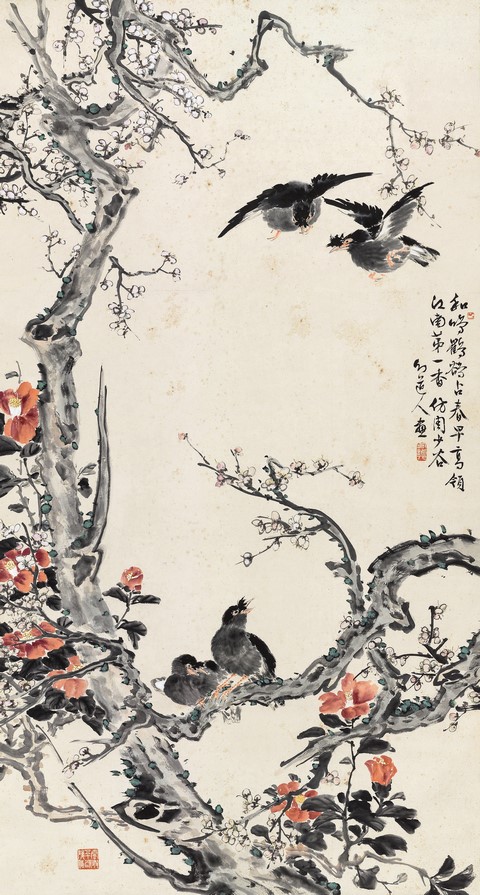 和鳴鸜鵒占春早高領
江南第一香仿周少谷
道人畫